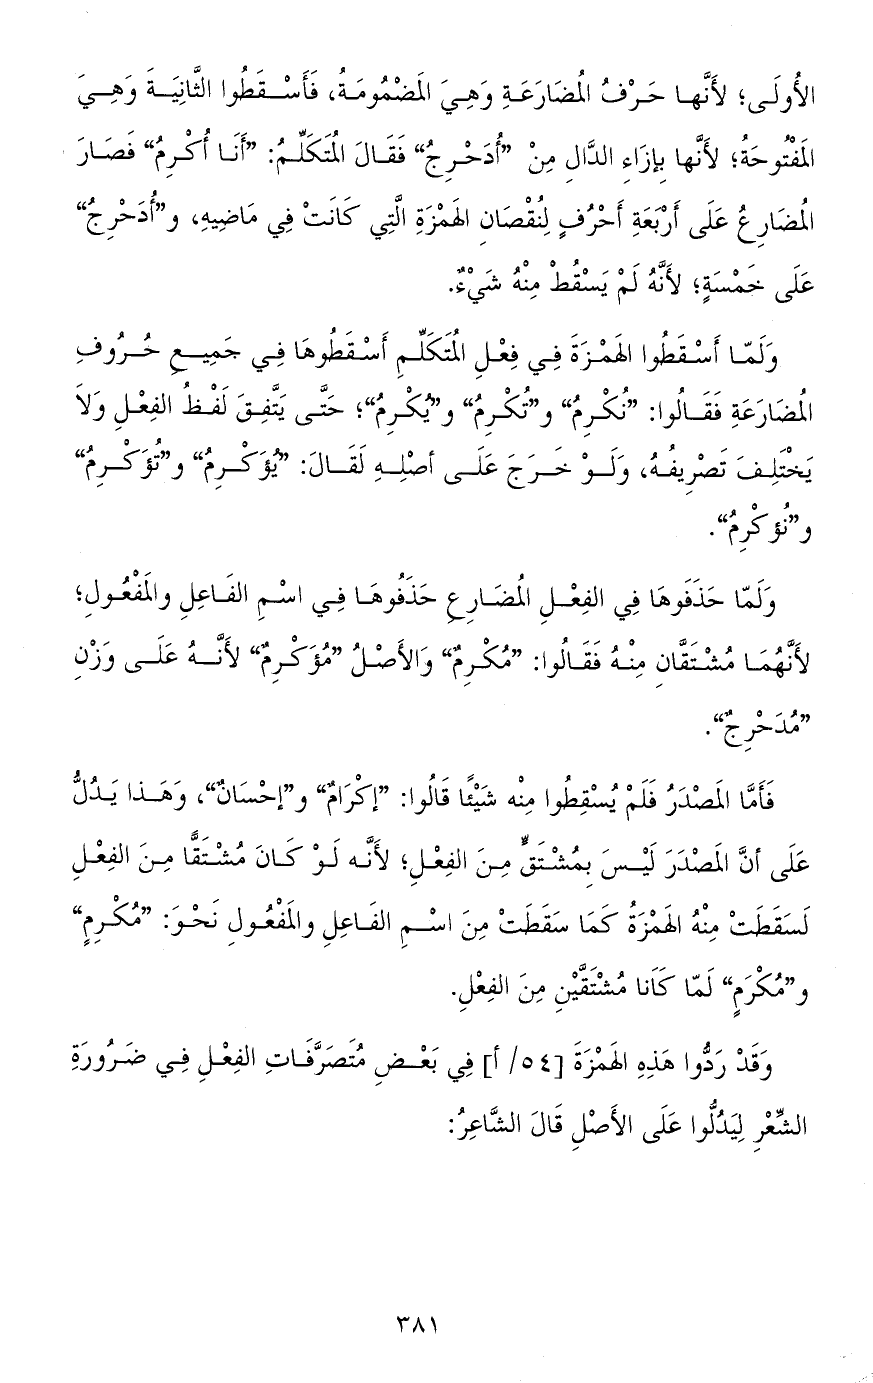 الأُولَى؛ لأَنَّها حَرْفُ المُضَارَعَةِ وَهِيَ المَضْمُومَةُ، فَأَسْقَطُوا الثَّانِيَةَ وَهِيَ
المَفْتُوحَةُ؛ لأَنَّها بِإزَاءِ الدَّالِ مِنْ ”أُدَحْرِجُ“ فَقَالَ المُتَكَلِّمُ: ”أَنَا أُكْرِمُ“ فَصَارَ
المُضَارِعُ عَلَى أَرْبَعَةِ أَحْرُفٍ لِنُقْصَانِ الهَمْزَةِ الَّتِي كَانَتْ فِي مَاضِيهِ، و”أُدَحْرِجُ“
عَلَى خَمْسَةٍ؛ لأَنَّهُ لَمْ يَسْقُطْ مِنْهُ شَيْءٌ.
وَلَمّا أَسْقَطُوا الهَمْزَةَ فِي فِعْلِ المُتَكَلِّمِ أَسْقَطُوهَا فِي جَمِيعِ حُرُوفِ
المُضَارَعَةِ فَقَالُوا: ”نُكْرِمُ“ و”تُكْرِمُ“ و”يُكْرِمُ“؛ حَتَّى يَتَّفِقَ لَفْظُ الفِعْلِ وَلاَ
يَخْتَلِفَ تَصْرِيفُهُ، وَلَوْ خَرَجَ عَلَى أصْلِهِ لَقَالَ: ”يُؤَكْرِمُ“ و”تُؤَكْرِمُ“
و”نُؤكْرِمُ“.
وَلَمّا حَذَفُوهَا فِي الفِعْلِ المُضَارِعِ حَذَفُوهَا فِي اسْمِ الفَاعِلِ والمَفْعُولِ؛
لأَنَّهُمَا مُشْتَقَّانِ مِنْهُ فَقَالُوا: ”مُكْرِمٌ“ وَالأَصْلُ ”مُؤَكْرِمٌ“ لأَنَّهُ عَلَى وَزْنِ
”مُدَحْرِجٌ“.
فَأَمَّا المَصْدَرُ فَلَمْ يُسْقِطُوا مِنْه شَيْئًا قَالُوا: ”إكْرَامٌ“ و”إحْسَانٌ“، وَهَذا يَدُلُّ
عَلَى أنَّ المَصْدَرَ لَيْسَ بِمُشْتَقٍّ مِنَ الفِعْلِ؛ لأَنَّه لَوْ كَانَ مُشْتَقًّا مِنَ الفِعْلِ
لَسَقَطَتْ مِنْهُ الهَمْزَةُ كَمَا سَقَطَتْ مِنَ اسْمِ الفَاعِلِ والمَفْعُولِ نَحْوَ: ”مُكْرِمٍ“
و”مُكْرَمٍ“ لَمّا كَانا مُشْتَقَّيْنِ مِنَ الفِعْلِ.
وَقَدْ رَدُّوا هَذِهِ الهَمْزَةَ [٥٤/ أ] فِي بَعْضِ مُتَصَرَّفَاتِ الفِعْلِ فِي ضَرُورَةِ
الشِّعْرِ لِيَدُلُّوا عَلَى الأَصْلِ قَالَ الشَّاعِرُ:
٣٨١